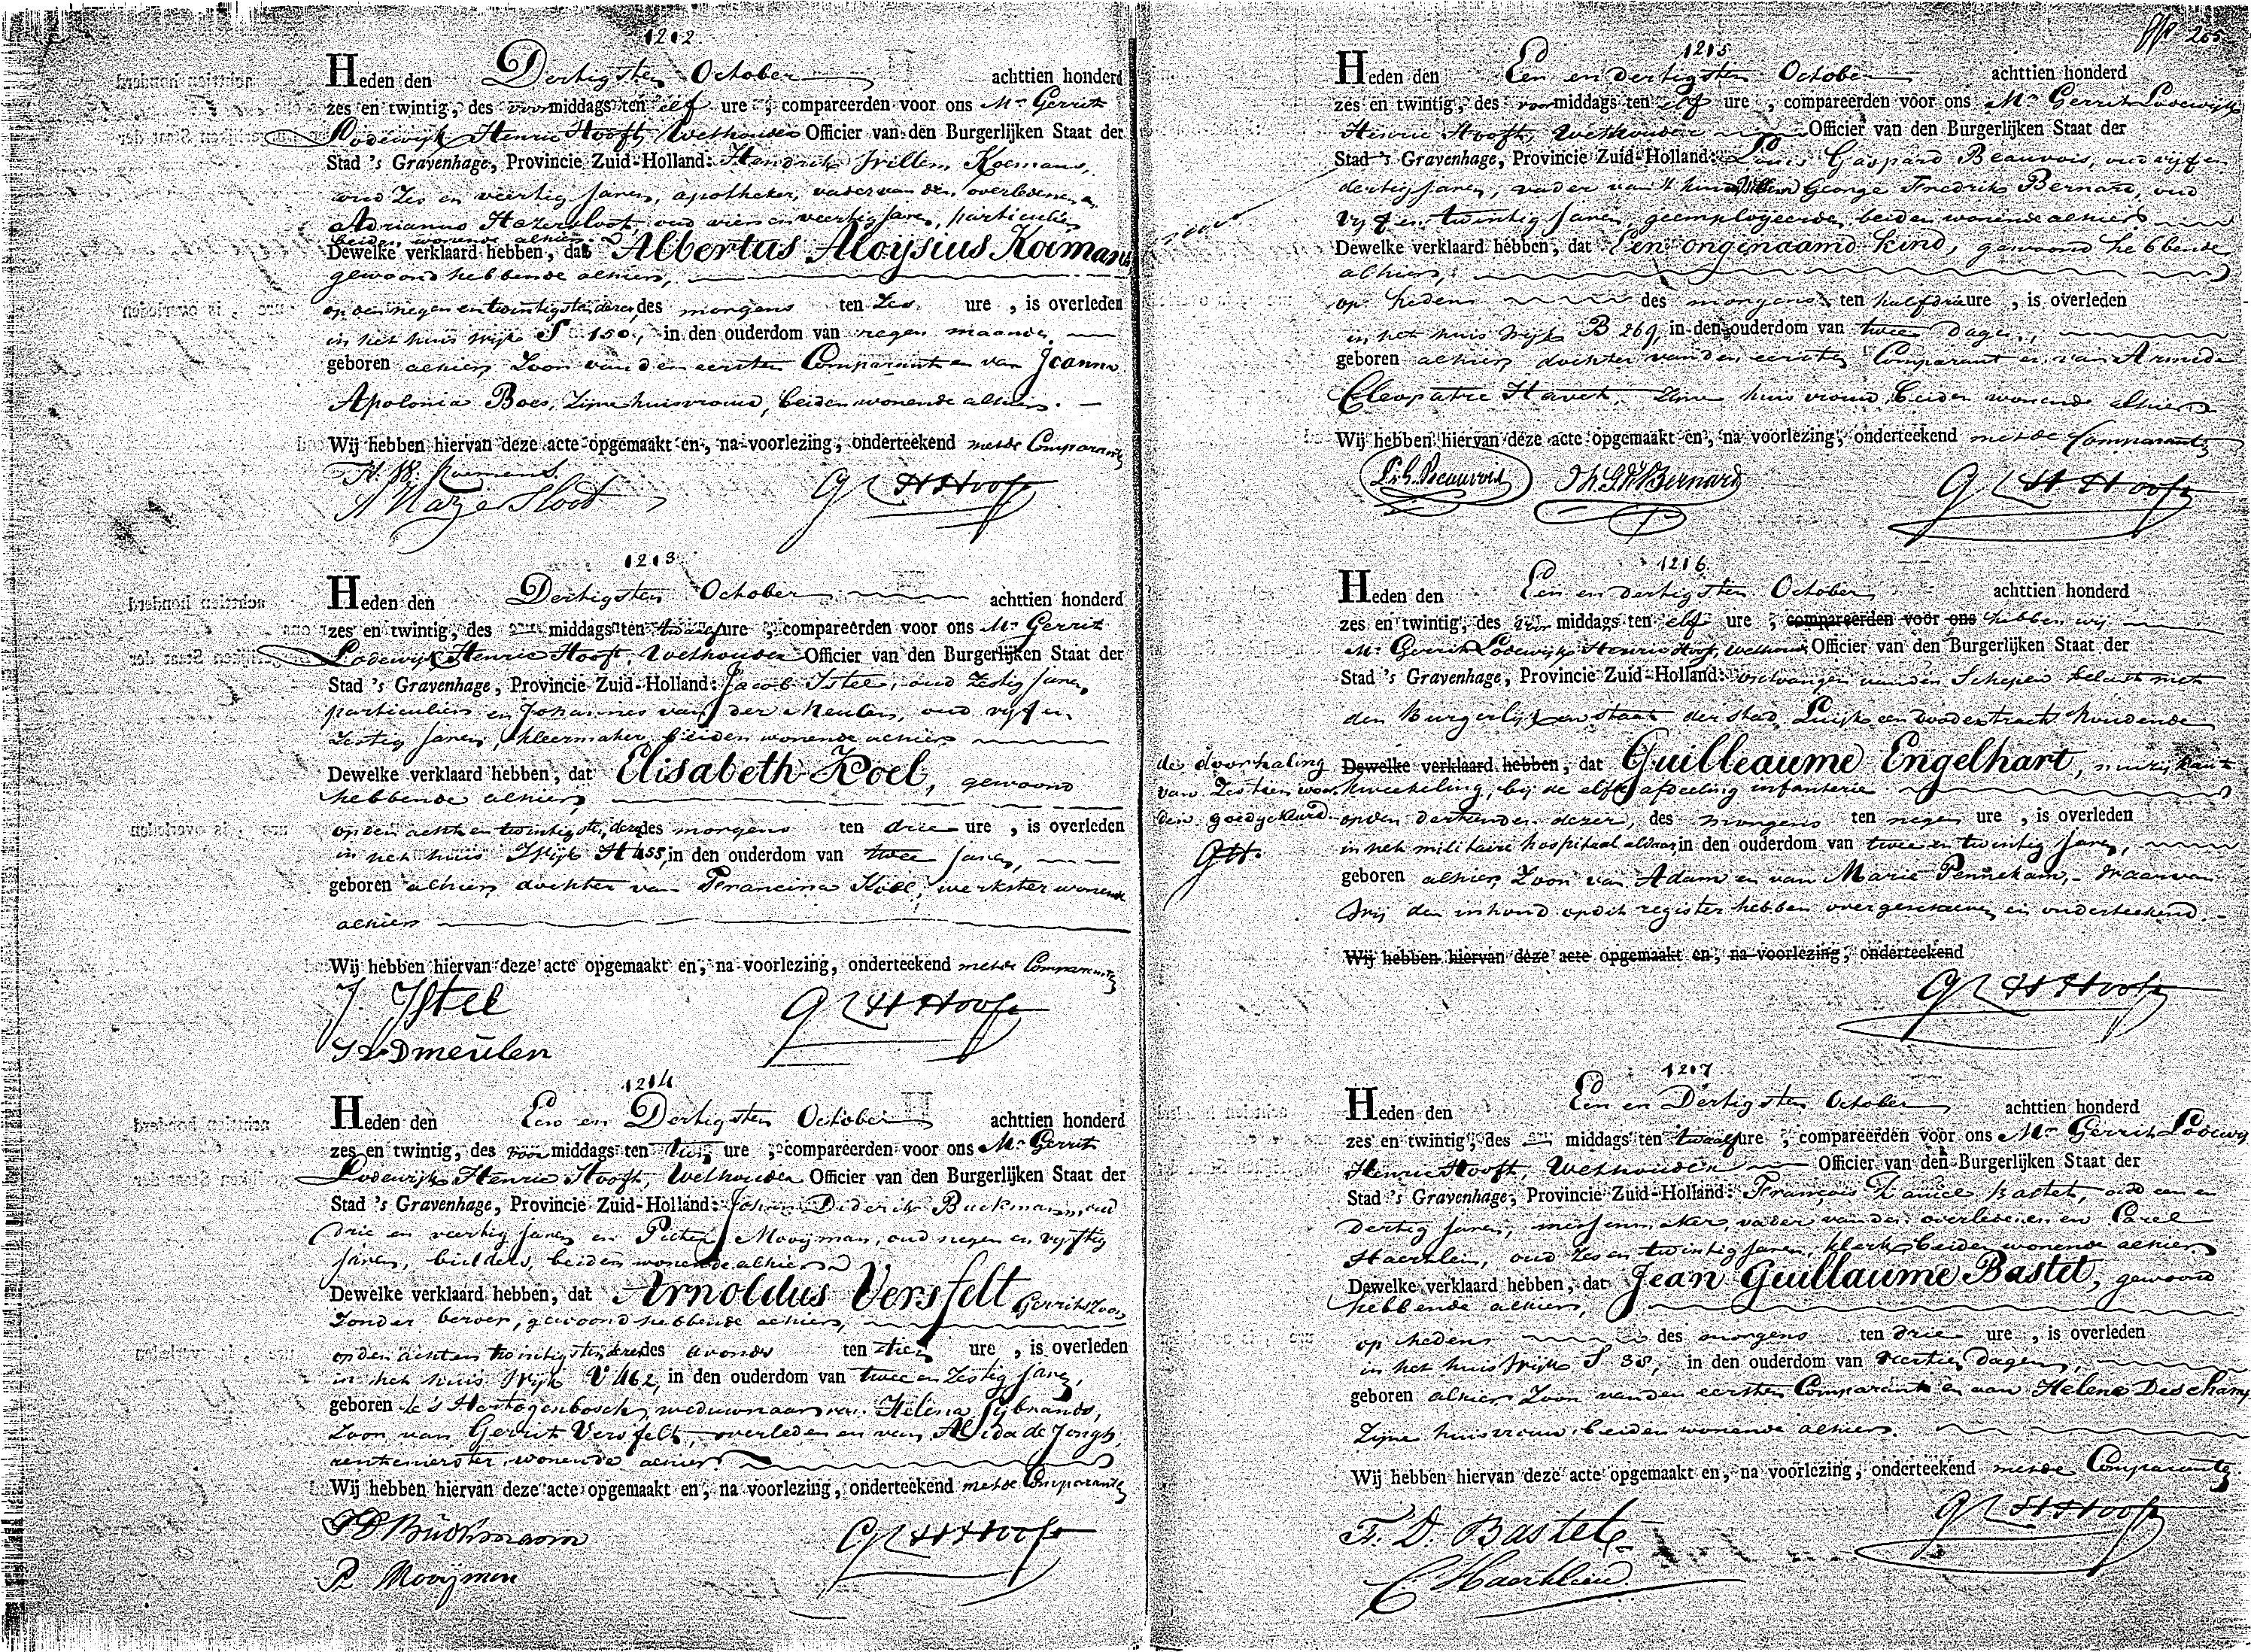 1212
Heden den Dertigsten October achttien honderd
zes en twintig, des voormiddags ten elf ure , compareerden voor ons Mr Gerrit
Lodewijk Henric Hooft, Wethouder Officier van den Burgerlijken Staat der
Stad 's Gravenhage, Provincie Zuid-Holland: Hendrik Willem Koemans,
oud Zes en veertig Jaren, apotheker, vader van den overledene en
Adrianus Hazersloot, oud vier en veertig Jaren, particulier
beiden wonende alhier
Dewelke verklaard hebben, dat Albertus Aloijsius Koemans
gewoond hebbende alhier,
op den negen en twintigsten dezer des morgens ten Zes ure , is overleden
in het huis wijk S 150, in den ouderdom van negen maanden
geboren alhier, Zoon van den eersten Comparant en van Joanna
Apolonia Boes, Zijne huisvrouw, beiden wonende alhier.
Wij hebben hiervan deze acte opgemaakt en, na voorlezing, onderteekend met de Comparanten
H. W. Koemans.
A Hazersloot
G L H Hooft
1213
Heden den Dertigsten October achttien honderd
zes en twintig, des middags ten twaalf ure , compareerden voor ons Mr Gerrit
Lodewijk Henric Hooft, Wethouder Officier van den Burgerlijken Staat der
Stad 's Gravenhage, Provincie Zuid-Holland: Jacob IJstel, oud Zestig Jaren,
particulier en Johannes van der Meulen, oud vijf en
Zestig Jaren, kleermaker, beiden wonende alhier
Dewelke verklaard hebben, dat Elisabeth Koel, gewoond
hebbende alhier
op den acht en twintigsten dezer des morgens ten drie ure , is overleden
in het huis Wijk H 455, in den ouderdom van twee Jaren,
geboren alhier, dochter van Francina Koel, werkster wonende
alhier
Wij hebben hiervan deze acte opgemaakt en, na voorlezing, onderteekend met de Comparanten
J. IJstel
J v D meulen
G L H Hooft
1214
Heden den Een en Dertigsten October achttien honderd
zes en twintig, des voor middags ten tien ure , compareerden voor ons Mr Gerrit
Lodewijk Henric Hooft, Wethouder Officier van den Burgerlijken Staat der
Stad 's Gravenhage, Provincie Zuid-Holland: Johan Diderik Buckmann, oud
drie en veertig Jaren en Pieter Mooijman, oud negen en vijftig
Jaren, beiden wonende alhier
Dewelke verklaard hebben, dat Arnoldus Versfelt Gerritszoon
Zonder beroep, gewoond hebbende alhier,
op den achten twintigsten dezer des avonds ten tien ure , is overleden
in het huis Wijk V 462, in den ouderdom van twee en Zestig Jaren,
geboren te s Hertogenbosch, weduwnaar van Helena Sijbrands,
Zoon van Gerrit Versfelt, overleden en van Alida de Jongh,
rentenierster wonende alhier
Wij hebben hiervan deze acte opgemaakt en, na voorlezing, onderteekend met de Comparanten
J D Buckmann
P Mooijman
G L H Hooft
205
1215
Heden den Een en dertigsten October achttien honderd
zes en twintig, des voormiddags ten elf ure , compareerden voor ons Mr Gerrit Lodewijk
Henric Hooft, Wethouder Officier van den Burgerlijken Staat der
Stad 's Gravenhage, Provincie Zuid-Holland: Louis Gaspard Beauvois, oud vijf en
dertig Jaren, vader van 't kind en George Fredrik Bernard, oud
vijf en twintig Jaren, geemployeerde, beiden wonende alhier
Dewelke verklaard hebben, dat Een ongenaamd kind, gewoond hebbende
alhier,
op heden des morgens ten half drie ure , is overleden
in het huis Wijk B 269, in den ouderdom van twee dagen,
geboren alhier, dochter van den eersten Comparant en van Armede
Cleopatre Havet, Zijne huisvrouw, beiden wonende alhier
Wij hebben hiervan deze acte opgemaakt en, na voorlezing, onderteekend met de Comparanten
L. G. Beauvois
G L H Hooft
1216
Heden den Een en dertigsten October achttien honderd
zes en twintig, des voor middags ten elf ure , compareerden voor ons hebben wij
Mr Gerrit Lodewijk Henric Hooft, Wethouder Officier van den Burgerlijken Staat der
Stad 's Gravenhage, Provincie Zuid-Holland: ontvangen van den Schepen belast met
den Burgerlijken staat der stad Luijk een dood extract houdende
Dewelke verklaard hebben, dat Guilleaume Engelhart, muzijkant
kweekeling, bij de elfde afdeeling infanterie
de doorhaling
van Zestien woor
den goedgekeurd
GH.
op den dertienden dezer, des morgens ten negen ure , is overleden
in het militaire hospitaal aldaar, in den ouderdom van twee en twintig Jaren,
geboren alhier, Zoon van Adam en van Marie Pennekam, Waarvan
Wij den inhoud op dit register hebben overgeschreven en onderteekend.
Wij hebben hiervan deze acte opgemaakt en, na voorlezing, onderteekend
G L H Hooft
1217
Heden den Een en Dertigsten October achttien honderd
zes en twintig, des middags ten twaalf ure , compareerden voor ons Mr Gerrit Lodewijk
Henric Hooft, Wethouder Officier van den Burgerlijken Staat der
Stad 's Gravenhage, Provincie Zuid-Holland: Francois Daniel Bastet, oud een en
Dertig Jaren, messenmaker, vader van den overledenen en Carel
Haerklein, oud Zes en twintig Jaren, klerk, beiden wonende alhier
Dewelke verklaard hebben, dat Jean Guillaume Bastet, gewoond
hebbende alhier,
op heden des morgens ten drie ure , is overleden
in het huis Wijk S 38, in den ouderdom van veertien dagen,
geboren alhier, Zoon van den eersten Comparant en van Helene Deschamp
Zijne huisvrouw, beiden wonende alhier.
Wij hebben hiervan deze acte opgemaakt en, na voorlezing, onderteekend met de Comparanten
F. D. Bastet
C Haerklein
G L H Hooft